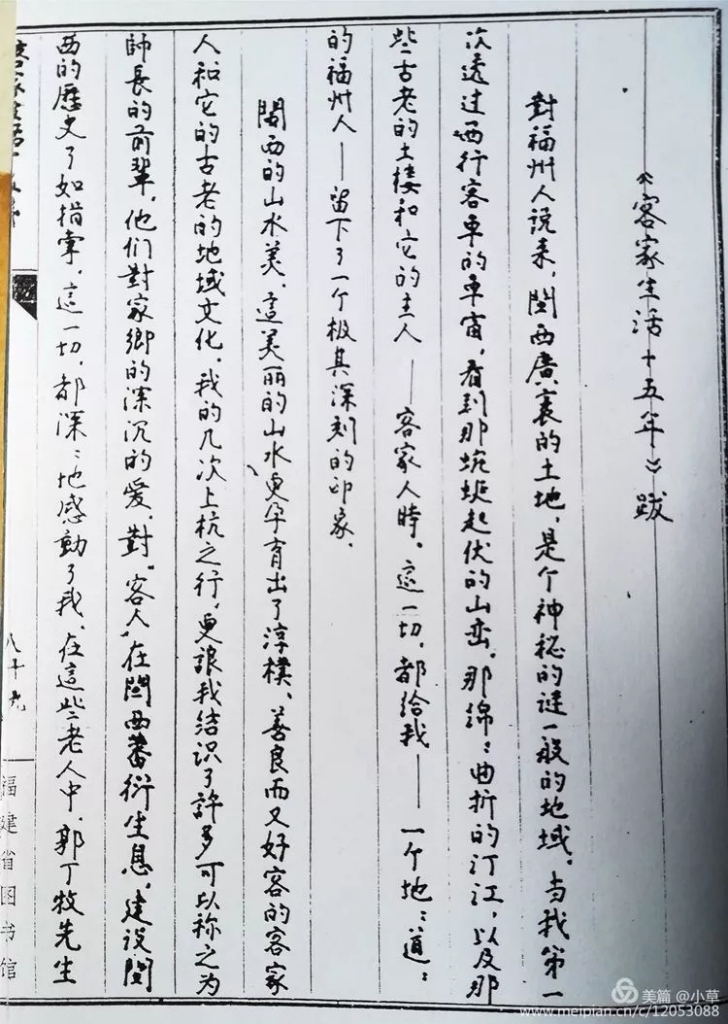 《客家生活十五年》跋
對福州人说来，閩西廣袤的土地，是个神秘的谜一般的地域。当我第一
次透过西行客车的车窗，看到那蜿蜒起伏的山峦，那绵〻曲折的汀江，以及那
些古老的土楼和它的主人——客家人時。這一切，都给我——一个地〻道〻
的福州人——留下了一个极其深刻的印象。
閩西的山水美，這美丽的山水更孕育出了淳樸、善良而又好客的客家
人和它的古老的地域文化。我的几次上杭之行，更讓我结识了許多可以称之为
師長的前辈，他们對家鄉的深沉的爱，對“客人”在閩西蕃衍生息，建设閩
西的歷史了如指掌，這一切，都深〻地感動了我。在這些老人中，郭丁牧先生
八十九
福建省图书馆
美篇 @小草
www.meipian.cn/c/12053088